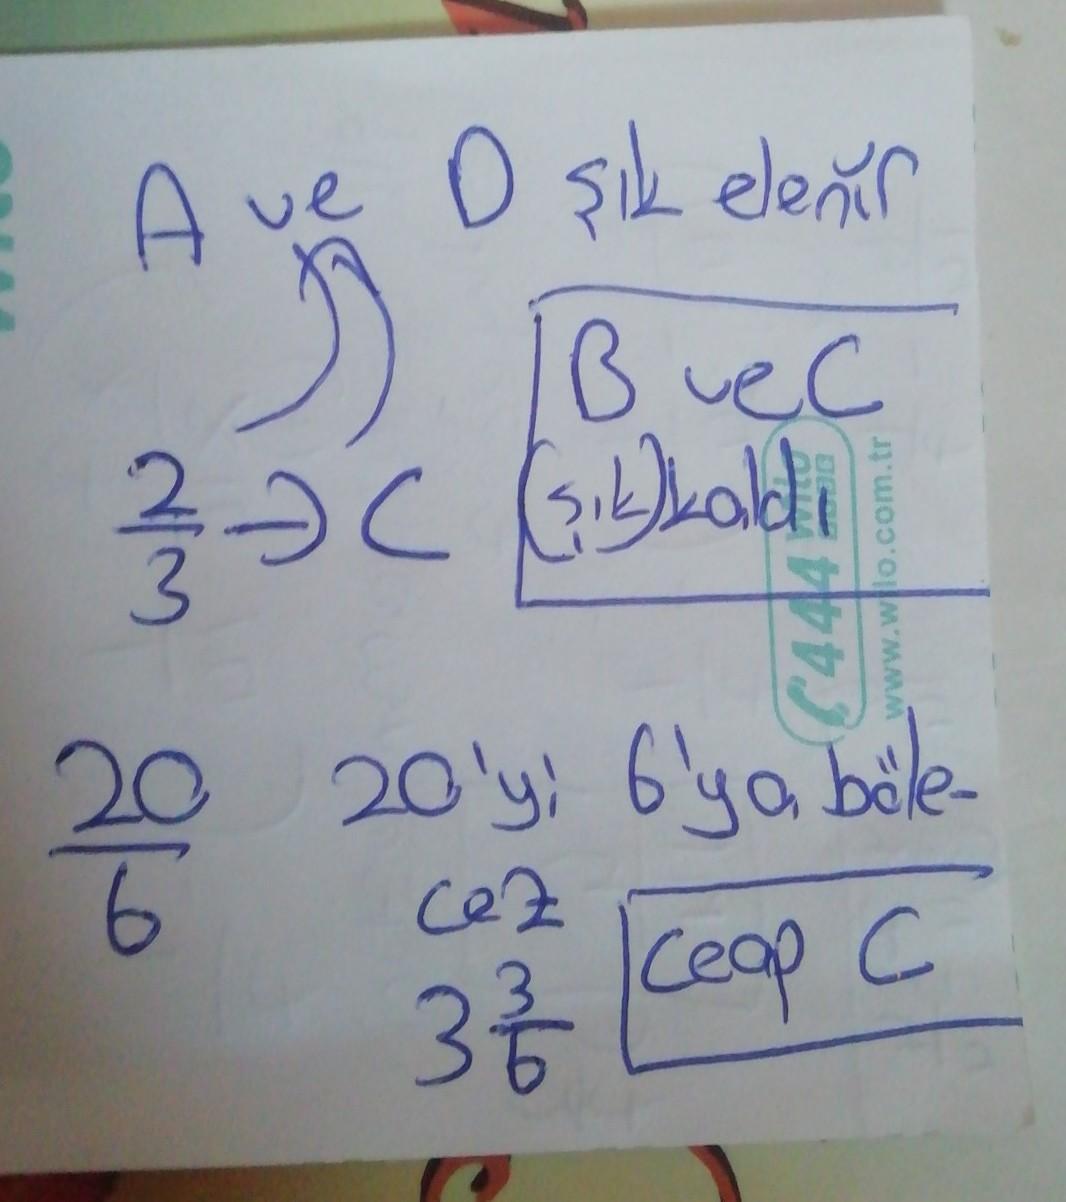 A ve D şık elenir
B ve C
(şık) kaldı
2/3 → C
444 wilo
www.wilo.com.tr
20/6 20'yi 6'ya böle-
cez
3 3/6
Ceap C